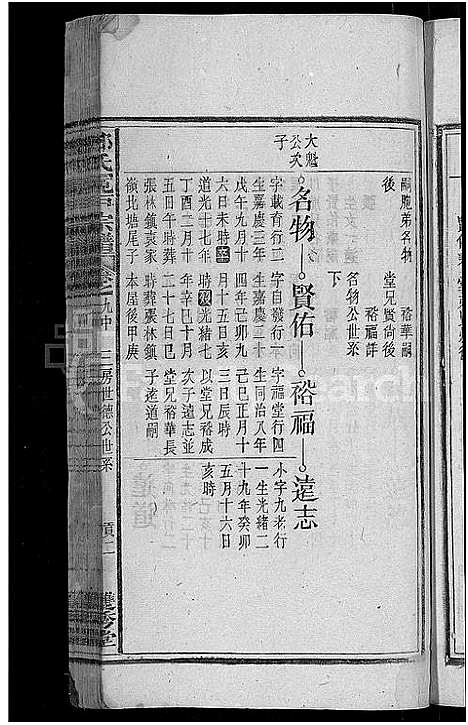 嗣胞弟名物
後
堂兄賢尚後
裕華嗣
裕福詳
名物公世系
下
大魁
公次
子
名物
賢佑
裕福
遠志
字載育行二
生嘉慶三年
戊午九月十
六日未時
道光十七年
丁酉二月十
五丑時葬
張林鎮袁家
嶺北塘尾子
字自發行二
生嘉慶二十
四年己卯九
月十五日亥
時
光緒七
年辛巳十月
二十七日巳
時葬張林鎮
本屋後甲庚
字福堂行四
生同治八年
己巳正月十
三日辰時
以堂兄裕成
次子遠志並
堂兄裕華長
子遠道嗣
小字九老行
一生光緒二
十九年癸卯
五月十六日
亥時
氏
宗譜
卷之九中
三房世德公世系